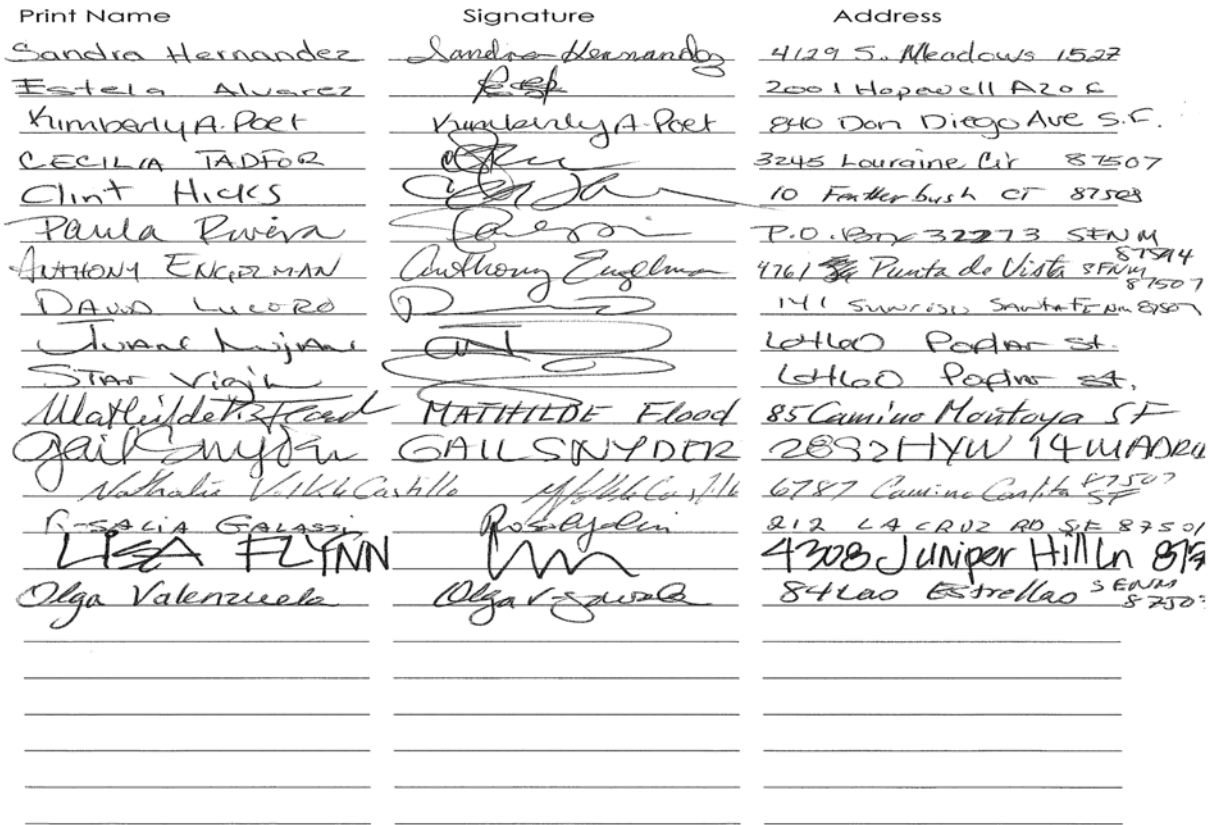 Print Name Signature Address
Sandra Hernandez Sandra Hernandez 4129 S. Meadows 1527
Estela Alvarez 2001 Hopewell A206
Kimberly A. Poet Kimberly A. Poet 840 Don Diego Ave S.F.
CECILIA TADFOR 3245 Louraine Cir 87507
Clint Hicks 10 Featherbush CT 87508
Paula Rivera P.O. Box 32273 SFNM 87594
ANTHONY ENGELMAN Anthony Engelman 4761 Punta de Vista SFNM 87507
DAVID LUCERO 141 Sunrise SANTA FE NM 87507
Lujan 6460 Poplar St.
STAR Vigil 6460 Poplar St.
Mathilde Flood MATHILDE Flood 85 Camino Montoya SF
Gail Snyder GAIL SNYDER 2892 HYW 14 MADRI
Nathalie Castillo 6787 Camino 87507 SF
ROSALIA GALASSINI 212 LA CRUZ RD S.F. 87501
LISA FLYNN 4308 Juniper Hill Ln 875
Olga Valenzuela Olga 84 Las Estrellas SFNM 8750